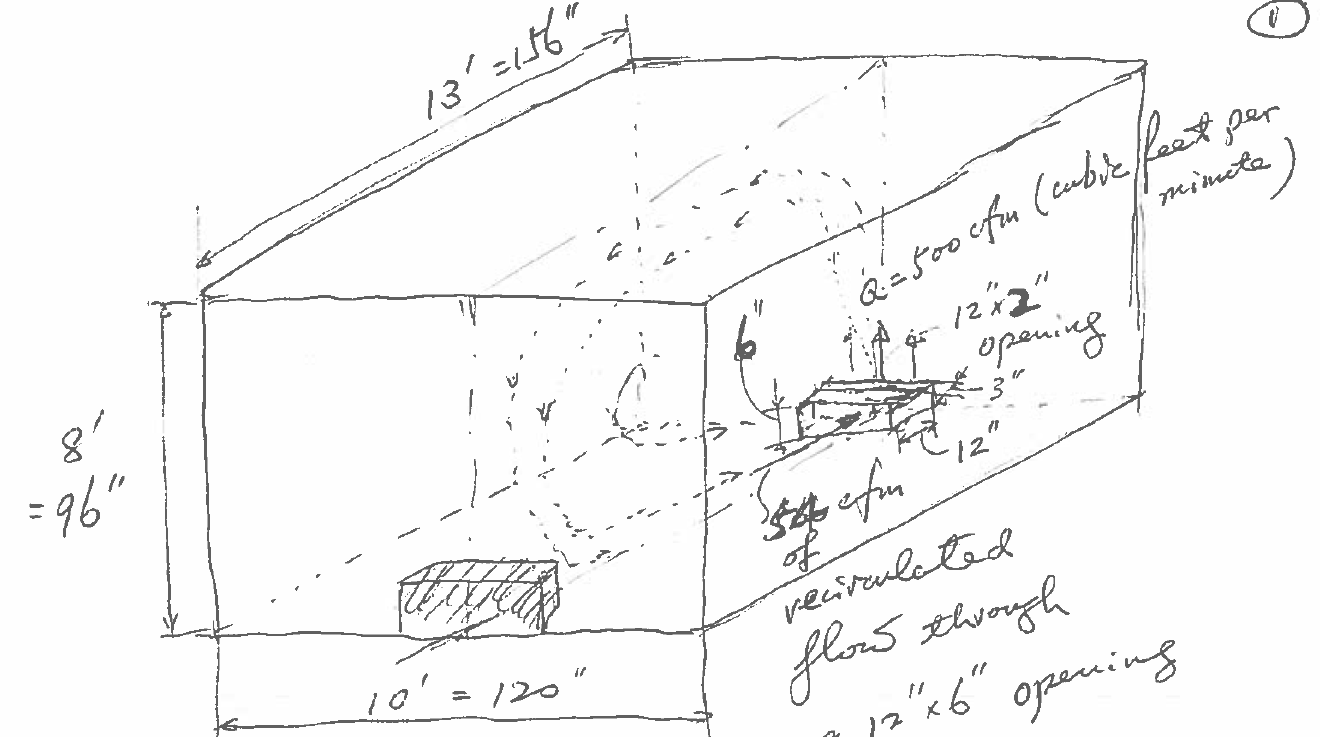 1
13' = 156"
Q = 500 cfm (cubic feet per
minute)
6"
12" x 2"
opening
3"
12"
8'
= 96"
cfm
of
recirculated
flow through
12" x 6" opening
10' = 120"